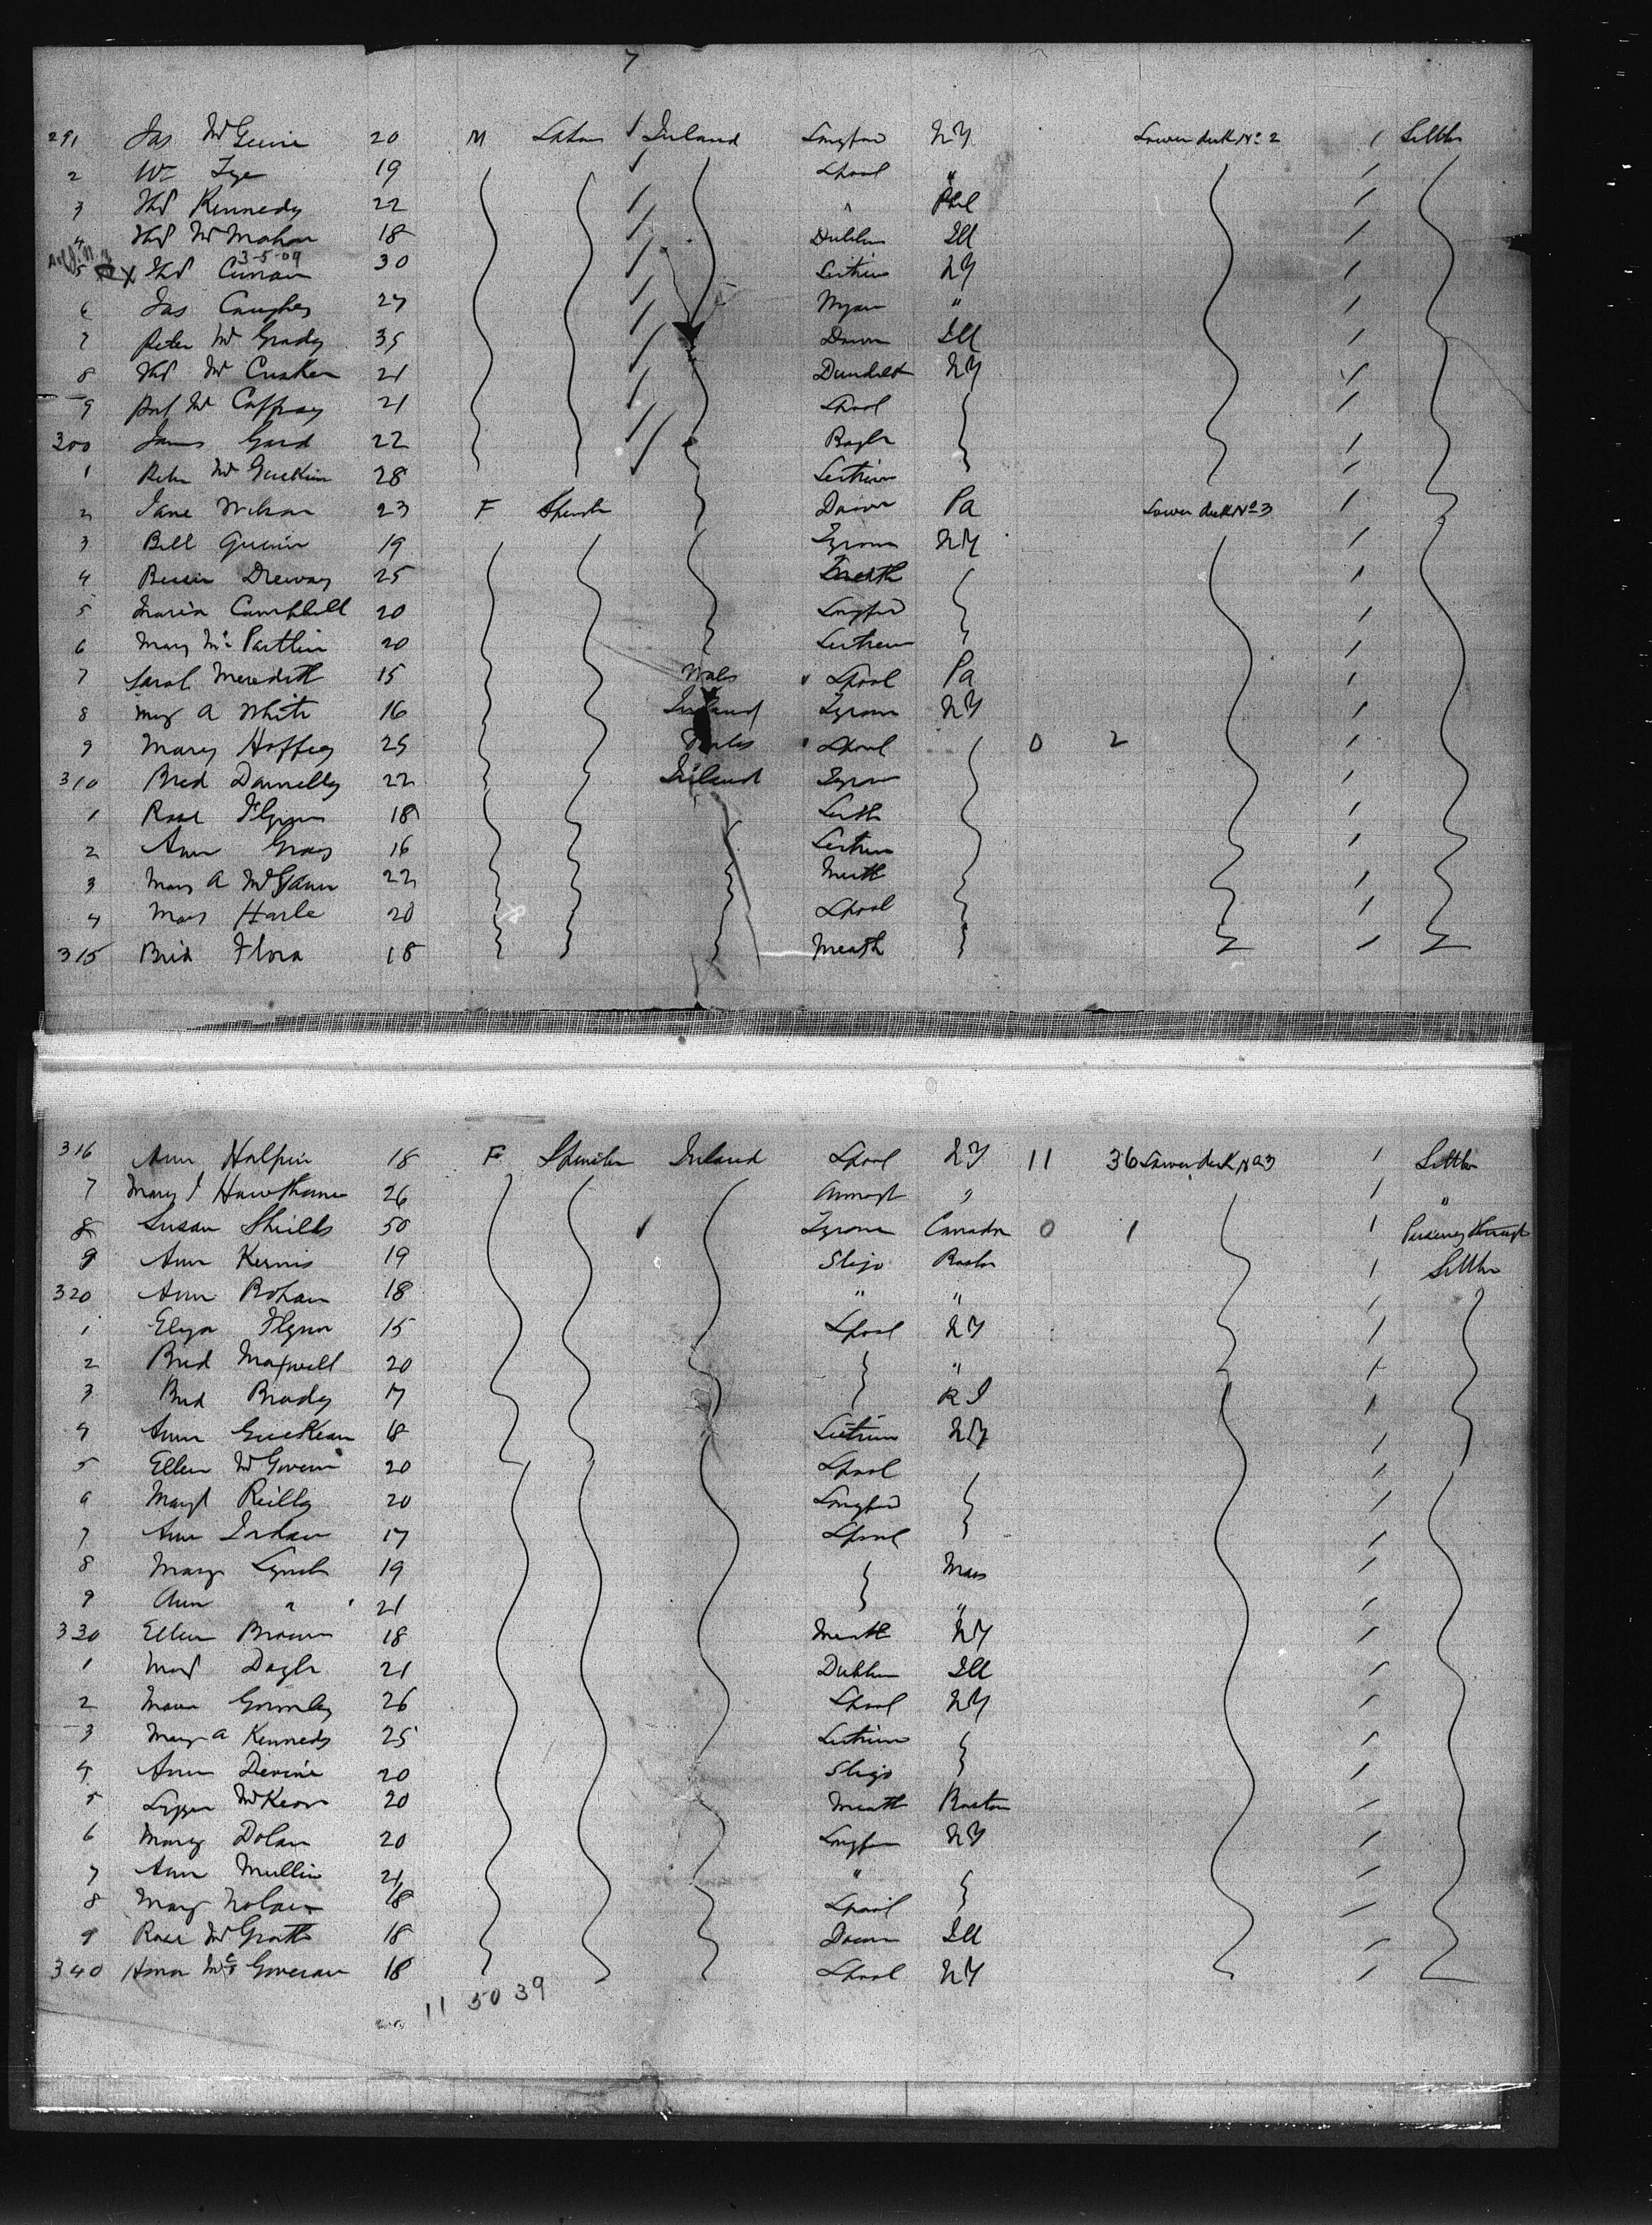 7
291 Jas McGuire 20 M Labor Ireland Longford NY Lower deck No 2 1 Settler
2 Wm Tye 19 Lpool "
3 Thos Kennedy 22 " Phil
4 Thos McMahon 18 Dublin Ill
3-5-09
5 X Thos Curran 30 Leitrim NY
6 Jas Caughey 27 "
7 Peter McGrady 35 Down Ill
8 Thos McCusker 21 Dundalk NY
9 Pat McCaffray 21 Lpool
300 James Gard 22 Boyle
1 Peter McGuckin 28 Leitrim
2 Jane Wilson 23 F Spinster Down Pa Lower deck No 3
3 Bell Quinn 19 Tyrone NY
4 Bessie Drewry 25 Meath
5 Maria Campbell 20 Longford
6 Mary McPartlin 20 Leitrim
7 Sarah Meredith 15 Wales Lpool Pa
8 Mary A White 16 Ireland Tyrone NY
9 Mary Hoffey 25 Wales Lpool 0 2
310 Brid Donnelly 22 Ireland Tyrone
1 Rose Flynn 18
2 Ann Gray 16 Leitrim
3 Mary A McGann 22 Meath
4 Mary Harle 20 Lpool
315 Brid Flora 18 Meath
316 Ann Halpin 18 F Spinster Ireland Lpool NY 11 36 Lower deck No 3 1 Settler
7 Mary J Hawthorne 26 Armagh " "
8 Susan Shields 50 Tyrone Canada 0 1 1 through
9 Ann Kernis 19 Sligo Boston 1 Settler
320 Ann Rohan 18 " "
1 Eliza Flynn 15 Lpool NY
2 Brid Maxwell 20 "
3 Brid Brady 17 R I
4 Ann Guckean 18 Leitrim NY
5 Ellen McGovern 20 Lpool
6 Margt Reilly 20 Longford
7 Ann Jordan 17 Lpool
8 Mary Lynch 19 Mass
9 Ann " 21 "
330 Ellen Brown 18 Meath NY
1 Mary Doyle 21 Dublin Ill
2 Maria Gormley 26 Lpool NY
3 Mary A Kennedy 25 Leitrim
4 Ann Devine 20 Sligo
5 Lizzie McKeon 20 Meath Boston
6 Mary Dolan 20 Longford NY
7 Ann Mullin 21 "
8 Mary Nolan 18 Lpool
9 Rose McGrath 18 Down Ill
340 Honor McGoveran 18 Lpool NY
11 50 39